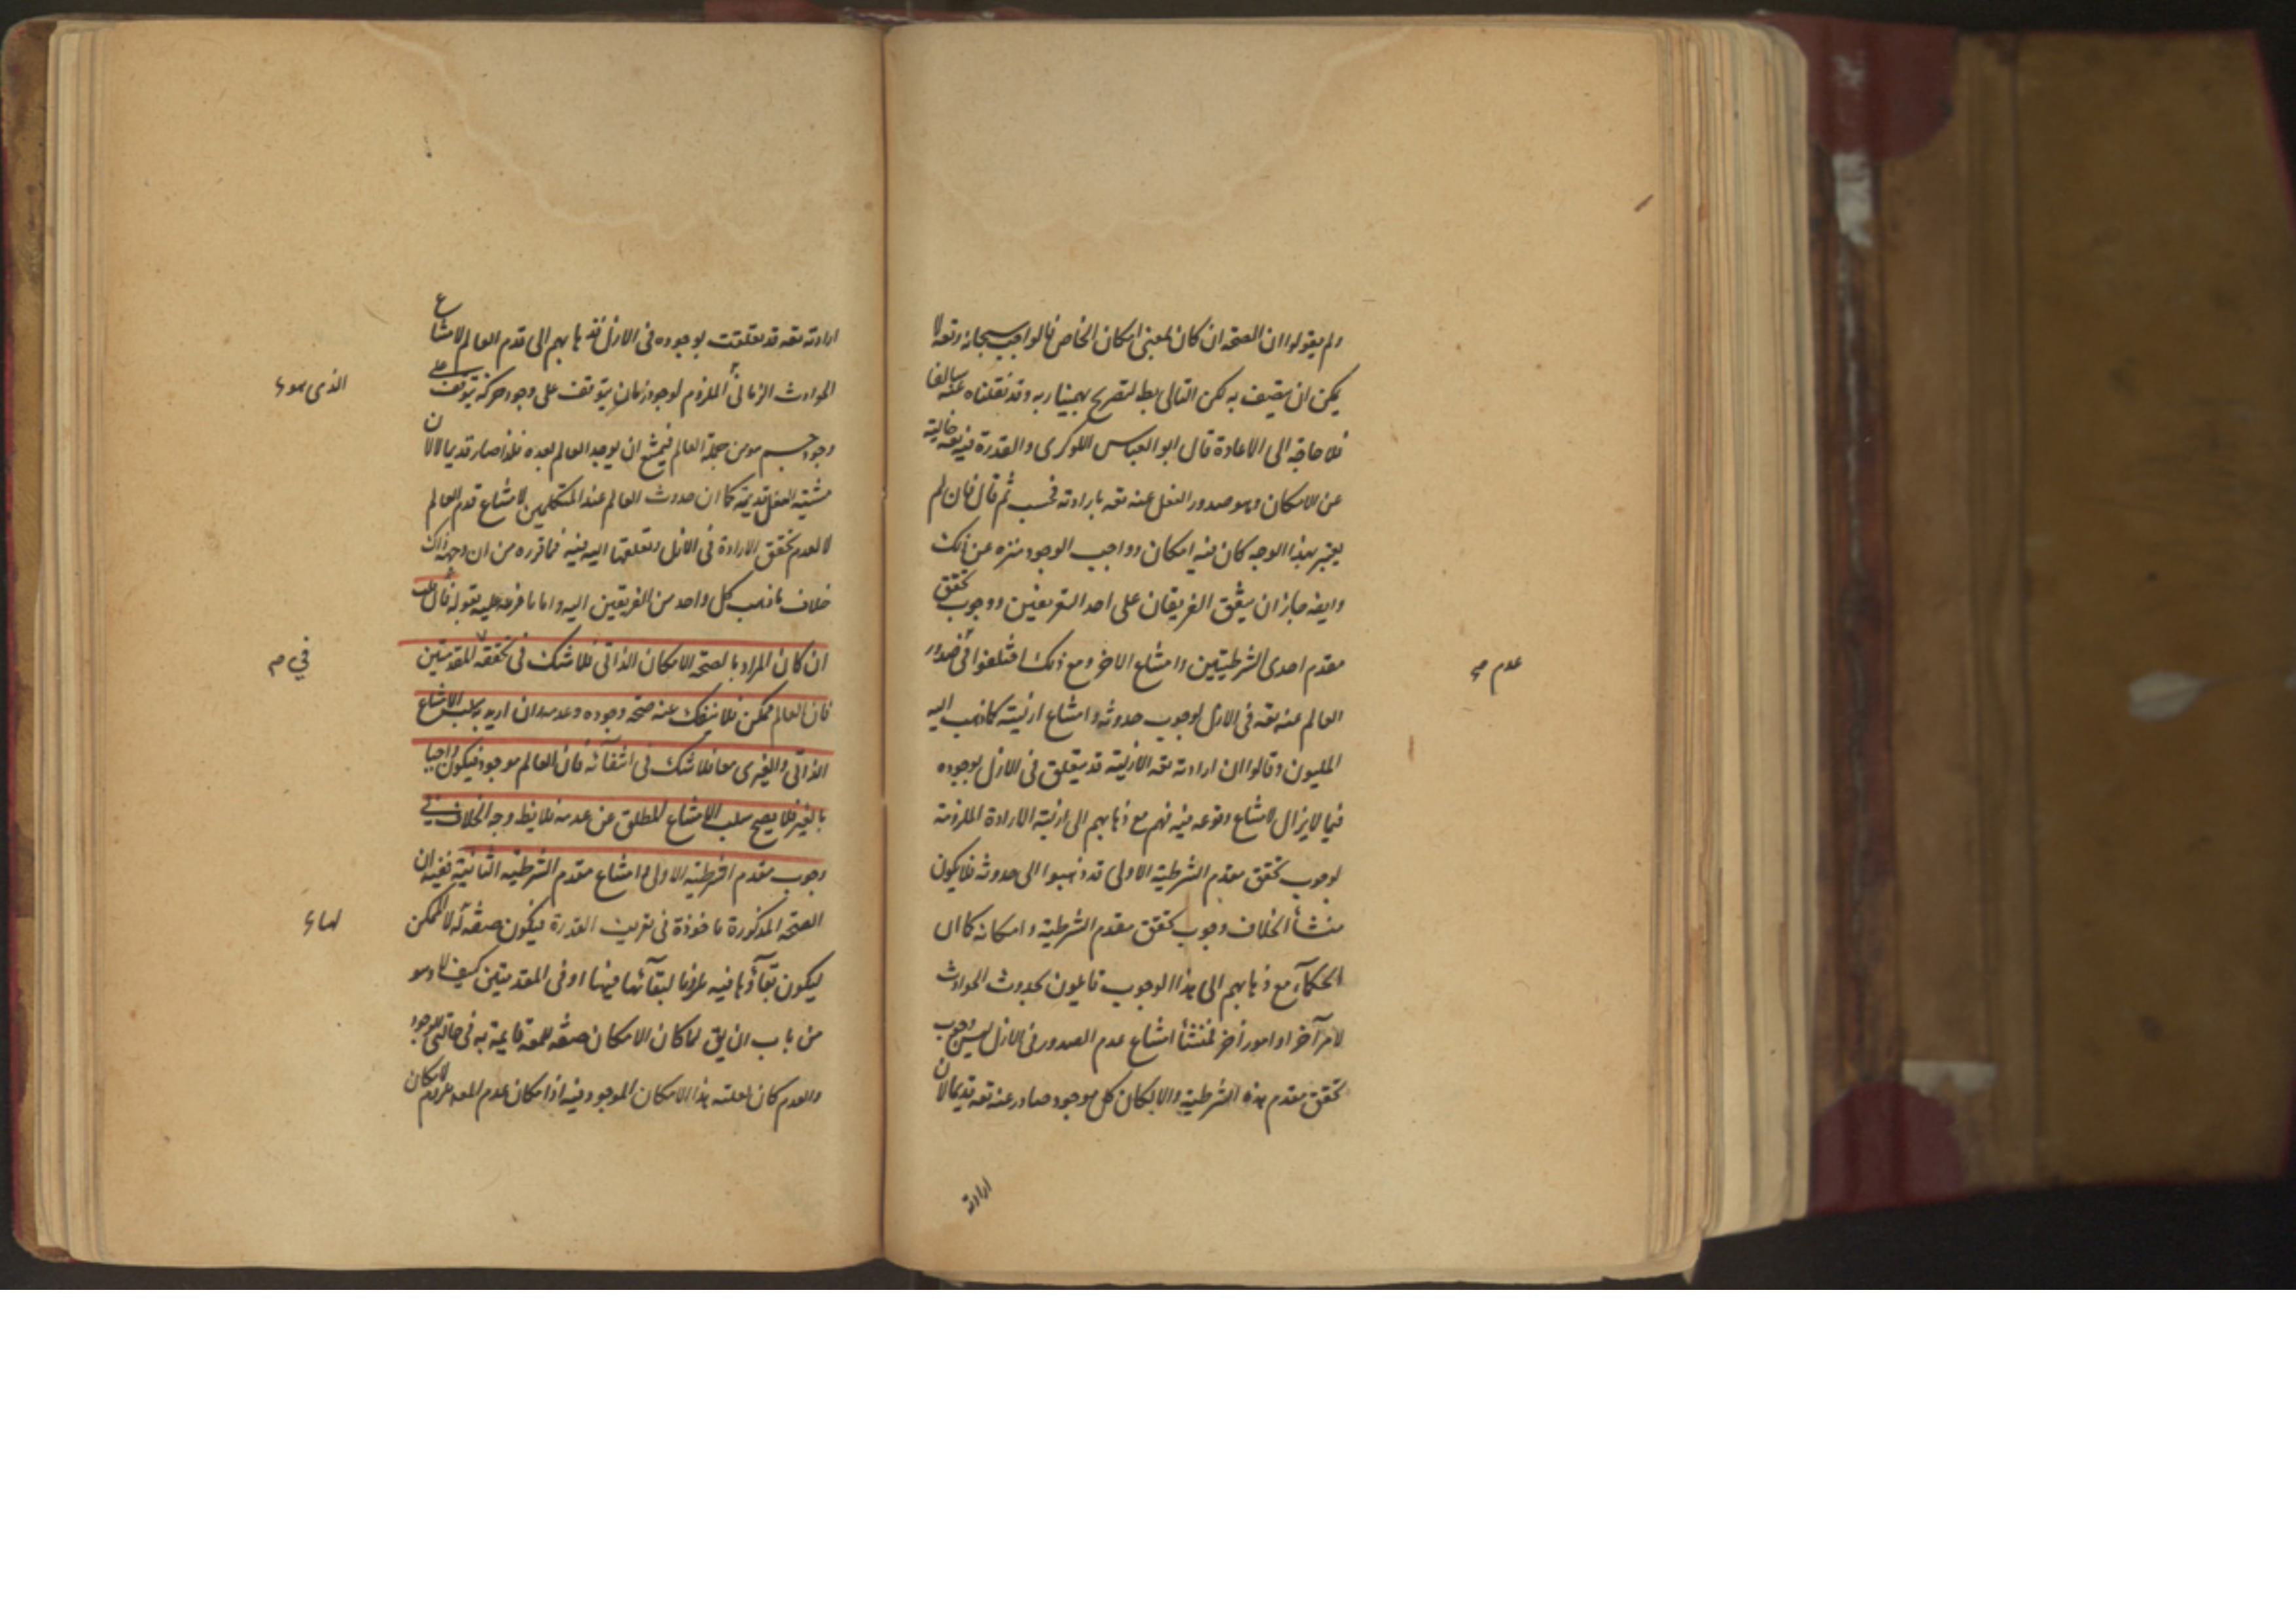 ولم يقولوا ان الصحة ان كان بمعنى امكان الخاص فالواجب سبحانه وتعه لا
يمكن ان يتصف به لكن التالى بط لتصريح بهمنيار به وقد نقلناه عنه سالفا
فلا حاجة الى الاعادة قال ابو العباس اللوكرى والقدرة فيه تعه خالية
عن الامكان وهو صدور الفعل عنه تعه بارادته فحسب ثم قال فان لم
يعتبر بهذا الوجه كان فيه امكان وواجب الوجود منزه عن ذلك
وايضه جاز ان يتفق الفريقان على احد التعريفين ووجوب تحقق
مقدم احدى الشرطيتين وامتناع الاخر ومع ذلك اختلفوا فى صدور
العالم عنه تعه فى الازل لوجوب حدوثه وامتناع ازليته كما ذهب اليه
المليون وقالوا ان ارادته تعه الازلية قد يتعلق فى الازل بوجوده
فيما لا يزال لامتناع وقوعه فيه فهم مع ذهابهم الى ازلية الارادة الملزمة
لوجوب تحقق مقدم الشرطية الاولى قد ذهبوا الى حدوثه فلا يكون
منشأ الخلاف وجوب تحقق مقدم الشرطية وامكانه كما ان
الحكمآء مع ذهابهم الى هذا الوجوب قايلون بحدوث الحوادث
لامر آخر او امور أخر فمنشأ امتناع عدم الصدور فى الازل ليس وجوب
تحقق مقدم هذه الشرطية والا لكان كل موجود صادر عنه تعه قديما لان
ارادته
عدم صح
ارادته تعه قد تعلقت بوجوده فى الازل فذهابهم الى قدم العالم لامتناع
الحوادث الزمانى الملزوم لوجود زمان يتوقف على وجود حركة يتوقف على
وجود جسم هو من جملة العالم فيمتنع ان يوجد العالم بعده فلذا صار قديما لا لان
مشية الفعل قديمة كما ان حدوث العالم عند المتكلمين لامتناع قدم العالم
لا لعدم تحقق الارادة فى الازل وتعلقها اليه فيه فما قرره من ان وجهه ذاك
خلاف ما ذهب كل واحد من الفريقين اليه واما ما فرعه عليه بقوله قال
ان كان المراد بالصحة الامكان الذاتى فلا شك فى تحققه المقدمتين
فان العالم ممكن فلا ينفك عنه صحة وجوده وعدمه وان اريد به سلب الامتناع
الذاتى والغيرى معا فلا شك فى انتفآئه فان العالم موجود فيكون واجبا
بالغير فلا يصح سلب الامتناع المطلق عن عدمه فلا يظ وجه الخلاف فى
وجوب مقدم الشرطية الاولى وامتناع مقدم الشرطية الثانية ففيه ان
الصحة المذكورة ماخوذة فى تعريف القدرة فيكون صفة له لا للممكن
ليكون بقآؤها فيه ملزوما لبقآئها فيها او فى المقدمتين كيف لا وهو
من باب ان يق لما كان الامكان صفة للمعه قايمة به فى حالتى الوجود
والعدم كان لعلته هذا الامكان الموجود فيه اذ امكان عدم المعه ملزوم لامكان
الذى هو
فى م
لها